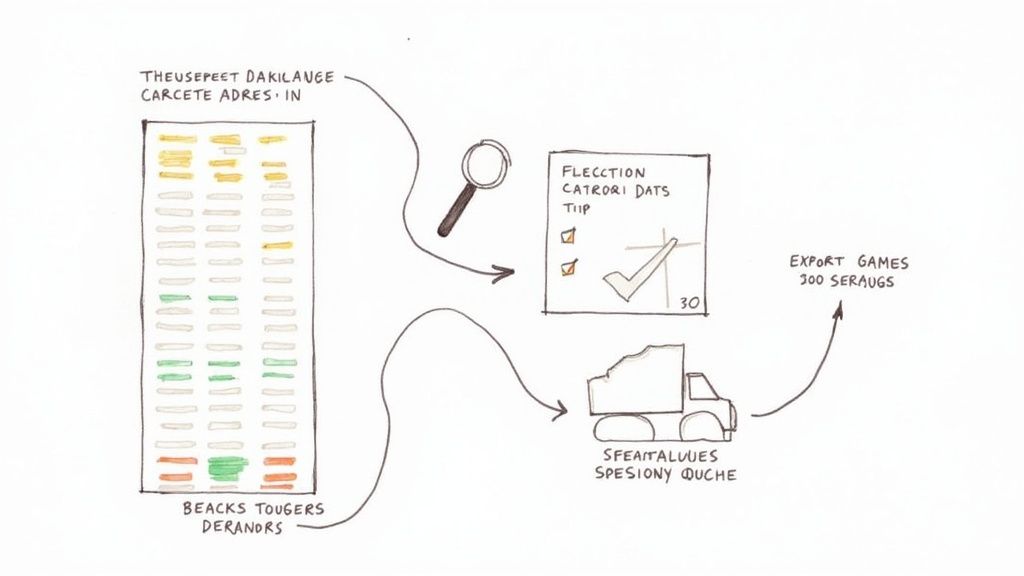 THEUSEPEET DAKILANGE
CARCETE ADRES. IN
FLECCTION
CATRORI DATS
TIIP
30
EXPORT GAMES
300 SERAUGS
SFEAITALUUES
SPESIONY QUCHE
BEACKS TOUGERS
DERANDRS